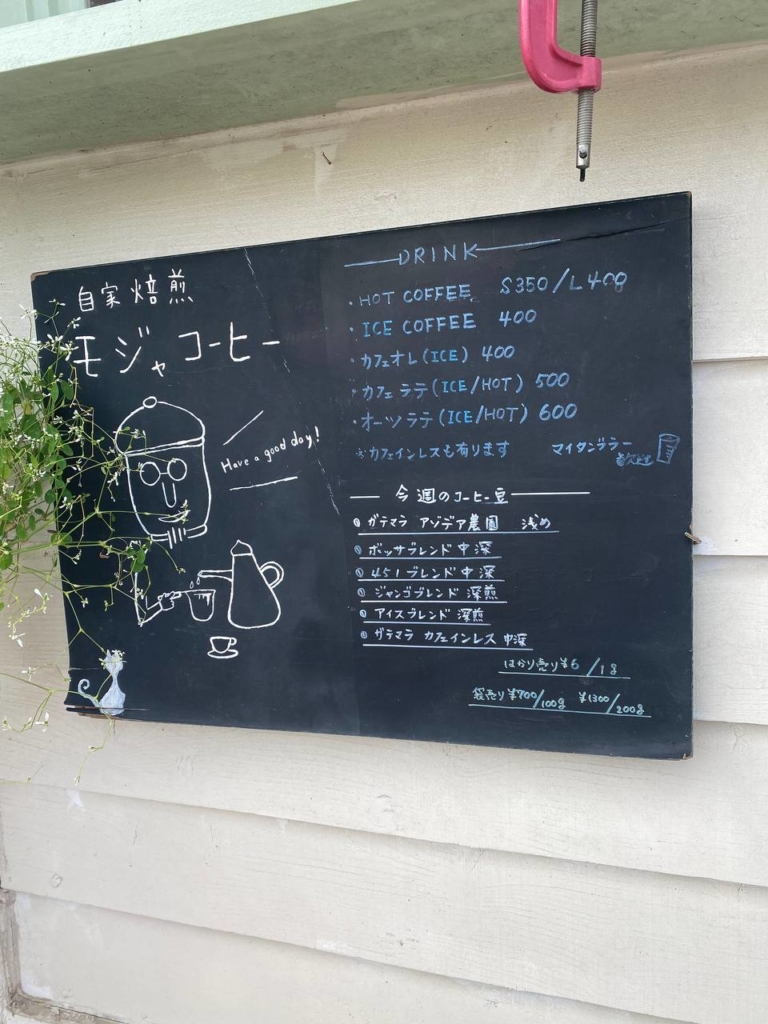 自家焙煎
モジャコーヒー
Have a good day!
DRINK
・HOT COFFEE S350/L400
・ICE COFFEE 400
・カフェオレ(ICE) 400
・カフェラテ(ICE/HOT) 500
・オーツラテ(ICE/HOT) 600
※カフェインレスも有ります
マイタンブラー
歓迎
今週のコーヒー豆
ガテマラ アゾデア農園 浅め
ボッサブレンド 中深
451ブレンド 中深
ジャンゴブレンド 深煎
アイスブレンド 深煎
ガテマラ カフェインレス 中深
はかり売り¥6/1g
袋売り¥700/100g ¥1300/200g